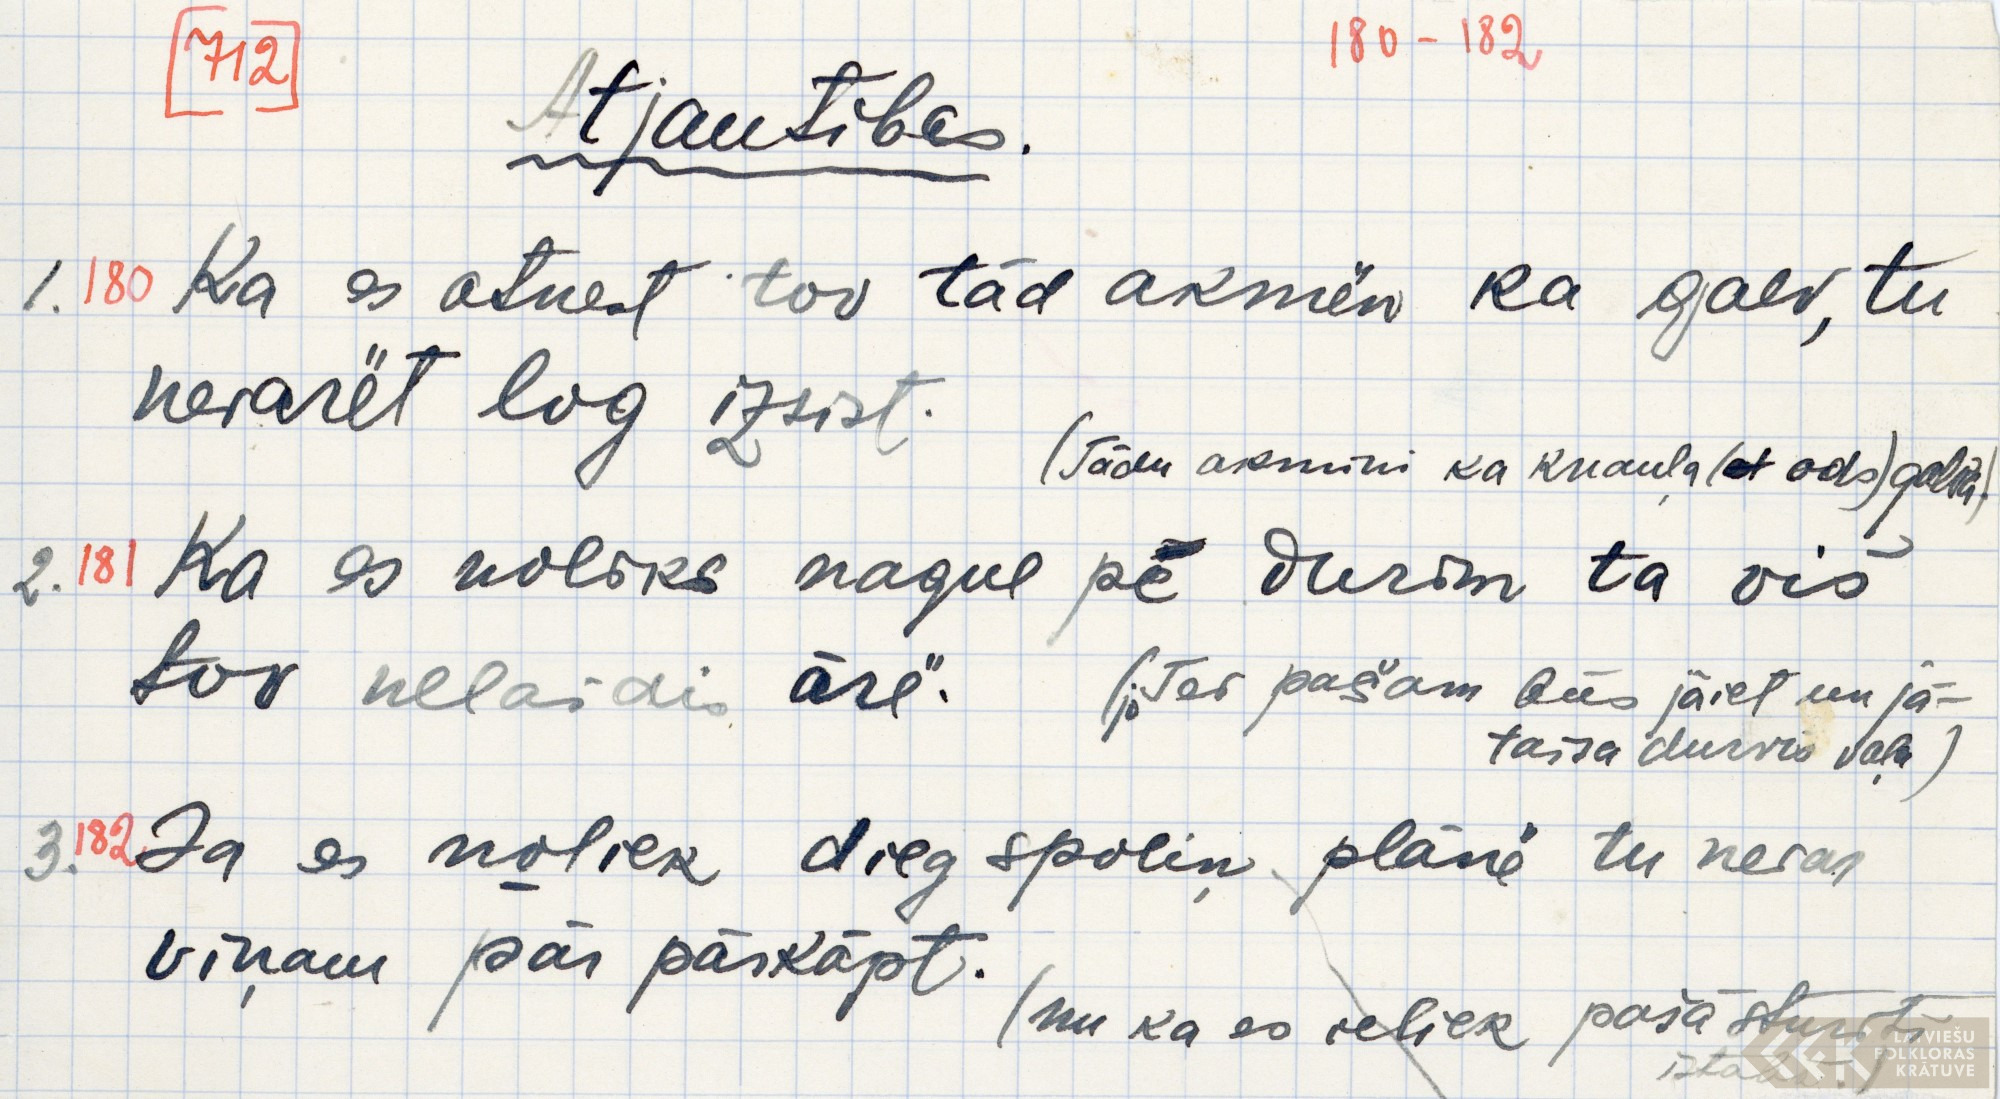 712
180 - 182
Atjautibas.
1. 180 Ka es atnest tov tād akmën ka galv, tu
nevarët log izsist.
(Tādu akmini ka knauļa (ods) galva)
2. 181 Ka es noliks nagul pē durim ta viš
tov nelaidis ārë.
(jo Tev pašam būs jāiet un jā-
taisa durvis vaļa)
3. 182 Ja es noliek dieg spoliņ plānë tu nevar
viņam pār pārkāpt.
(nu ka es ieliek pašā stūrītī
LATVIEŠU
FOLKLORAS
KRĀTUVE